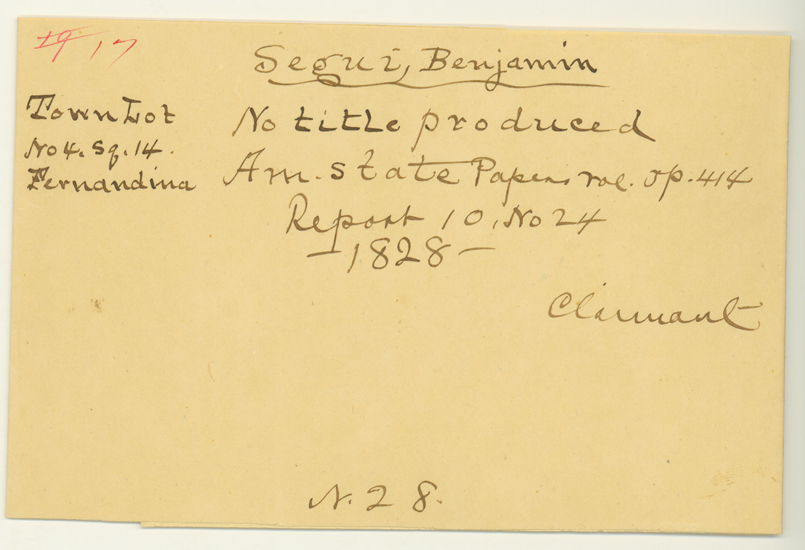 17
Segui, Benjamin
Town Lot
No 4. Sq. 14.
Fernandina
No title produced
Am. State Papers vol. p. 414
Report 10, No 24
—1828—
Claimant
N. 28.